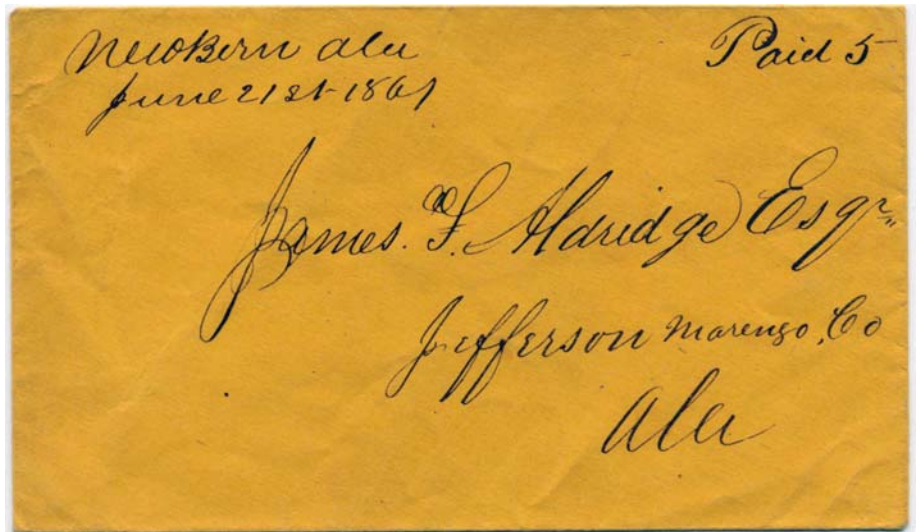 NewBern ala
June 21st 1861
Paid 5
James. F. Aldridge Esqr
Jefferson Marengo, Co
Ala